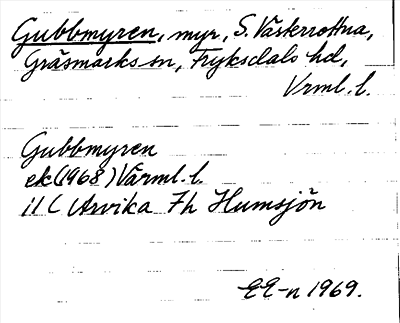 Gubbmyren, myr, S. Väskerrottna,
Gräsmarks sn, Fryksdals hd,
Vrml. l.
Gubbmyren
ek(1968) Värml. l.
11 C Arvika 7h Humsjön
EE-n 1969.